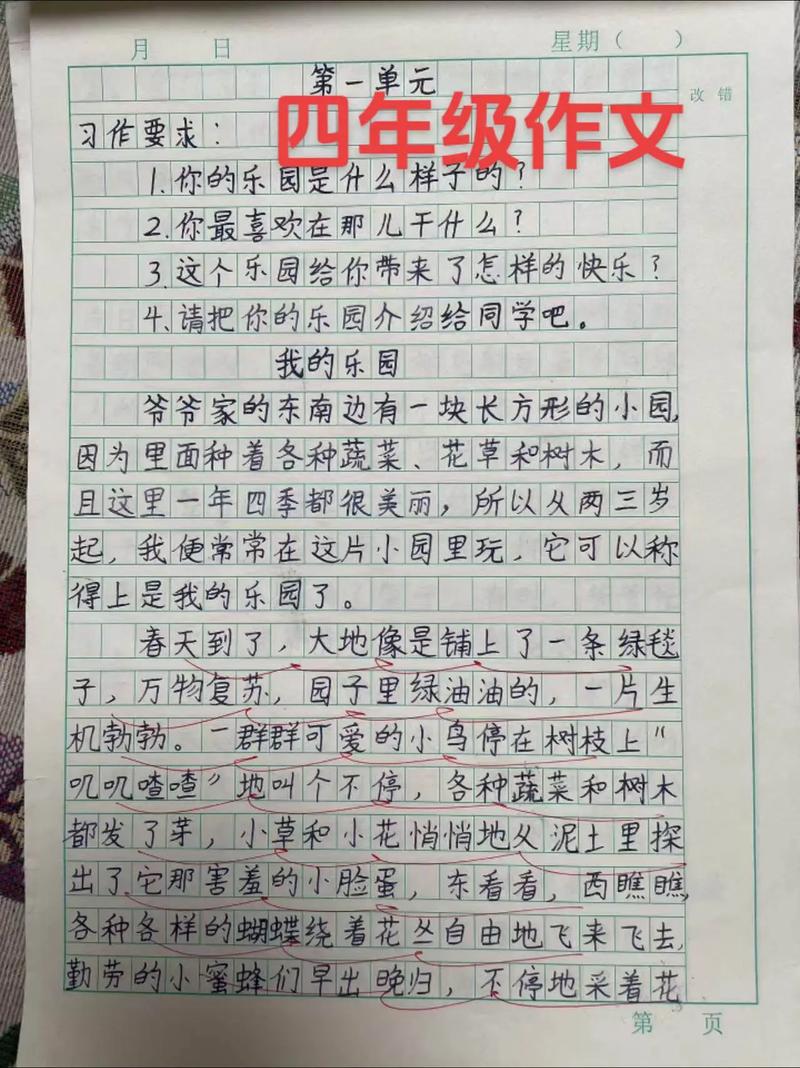 月 日 星期（ ）
第一单元
四年级作文
改错
习作要求：
1.你的乐园是什么样子的？
2.你最喜欢在那儿干什么？
3.这个乐园给你带来了怎样的快乐？
4.请把你的乐园介绍给同学吧。
我的乐园
爷爷家的东南边有一块长方形的小园，
因为里面种着各种蔬菜、花草和树木，而
且这里一年四季都很美丽，所以从两三岁
起，我便常常在这片小园里玩，它可以称
得上是我的乐园了。
春天到了，大地像是铺上了一条绿毯
子，万物复苏，园子里绿油油的，一片生
机勃勃。一群群可爱的小鸟停在树枝上“
叽叽喳喳”地叫个不停，各种蔬菜和树木
都发了芽，小草和小花悄悄地从泥土里探
出了它那害羞的小脸蛋，东看看，西瞧瞧，
各种各样的蝴蝶绕着花丛自由地飞来飞去，
勤劳的小蜜蜂们早出晚归，不停地采着花
第 页